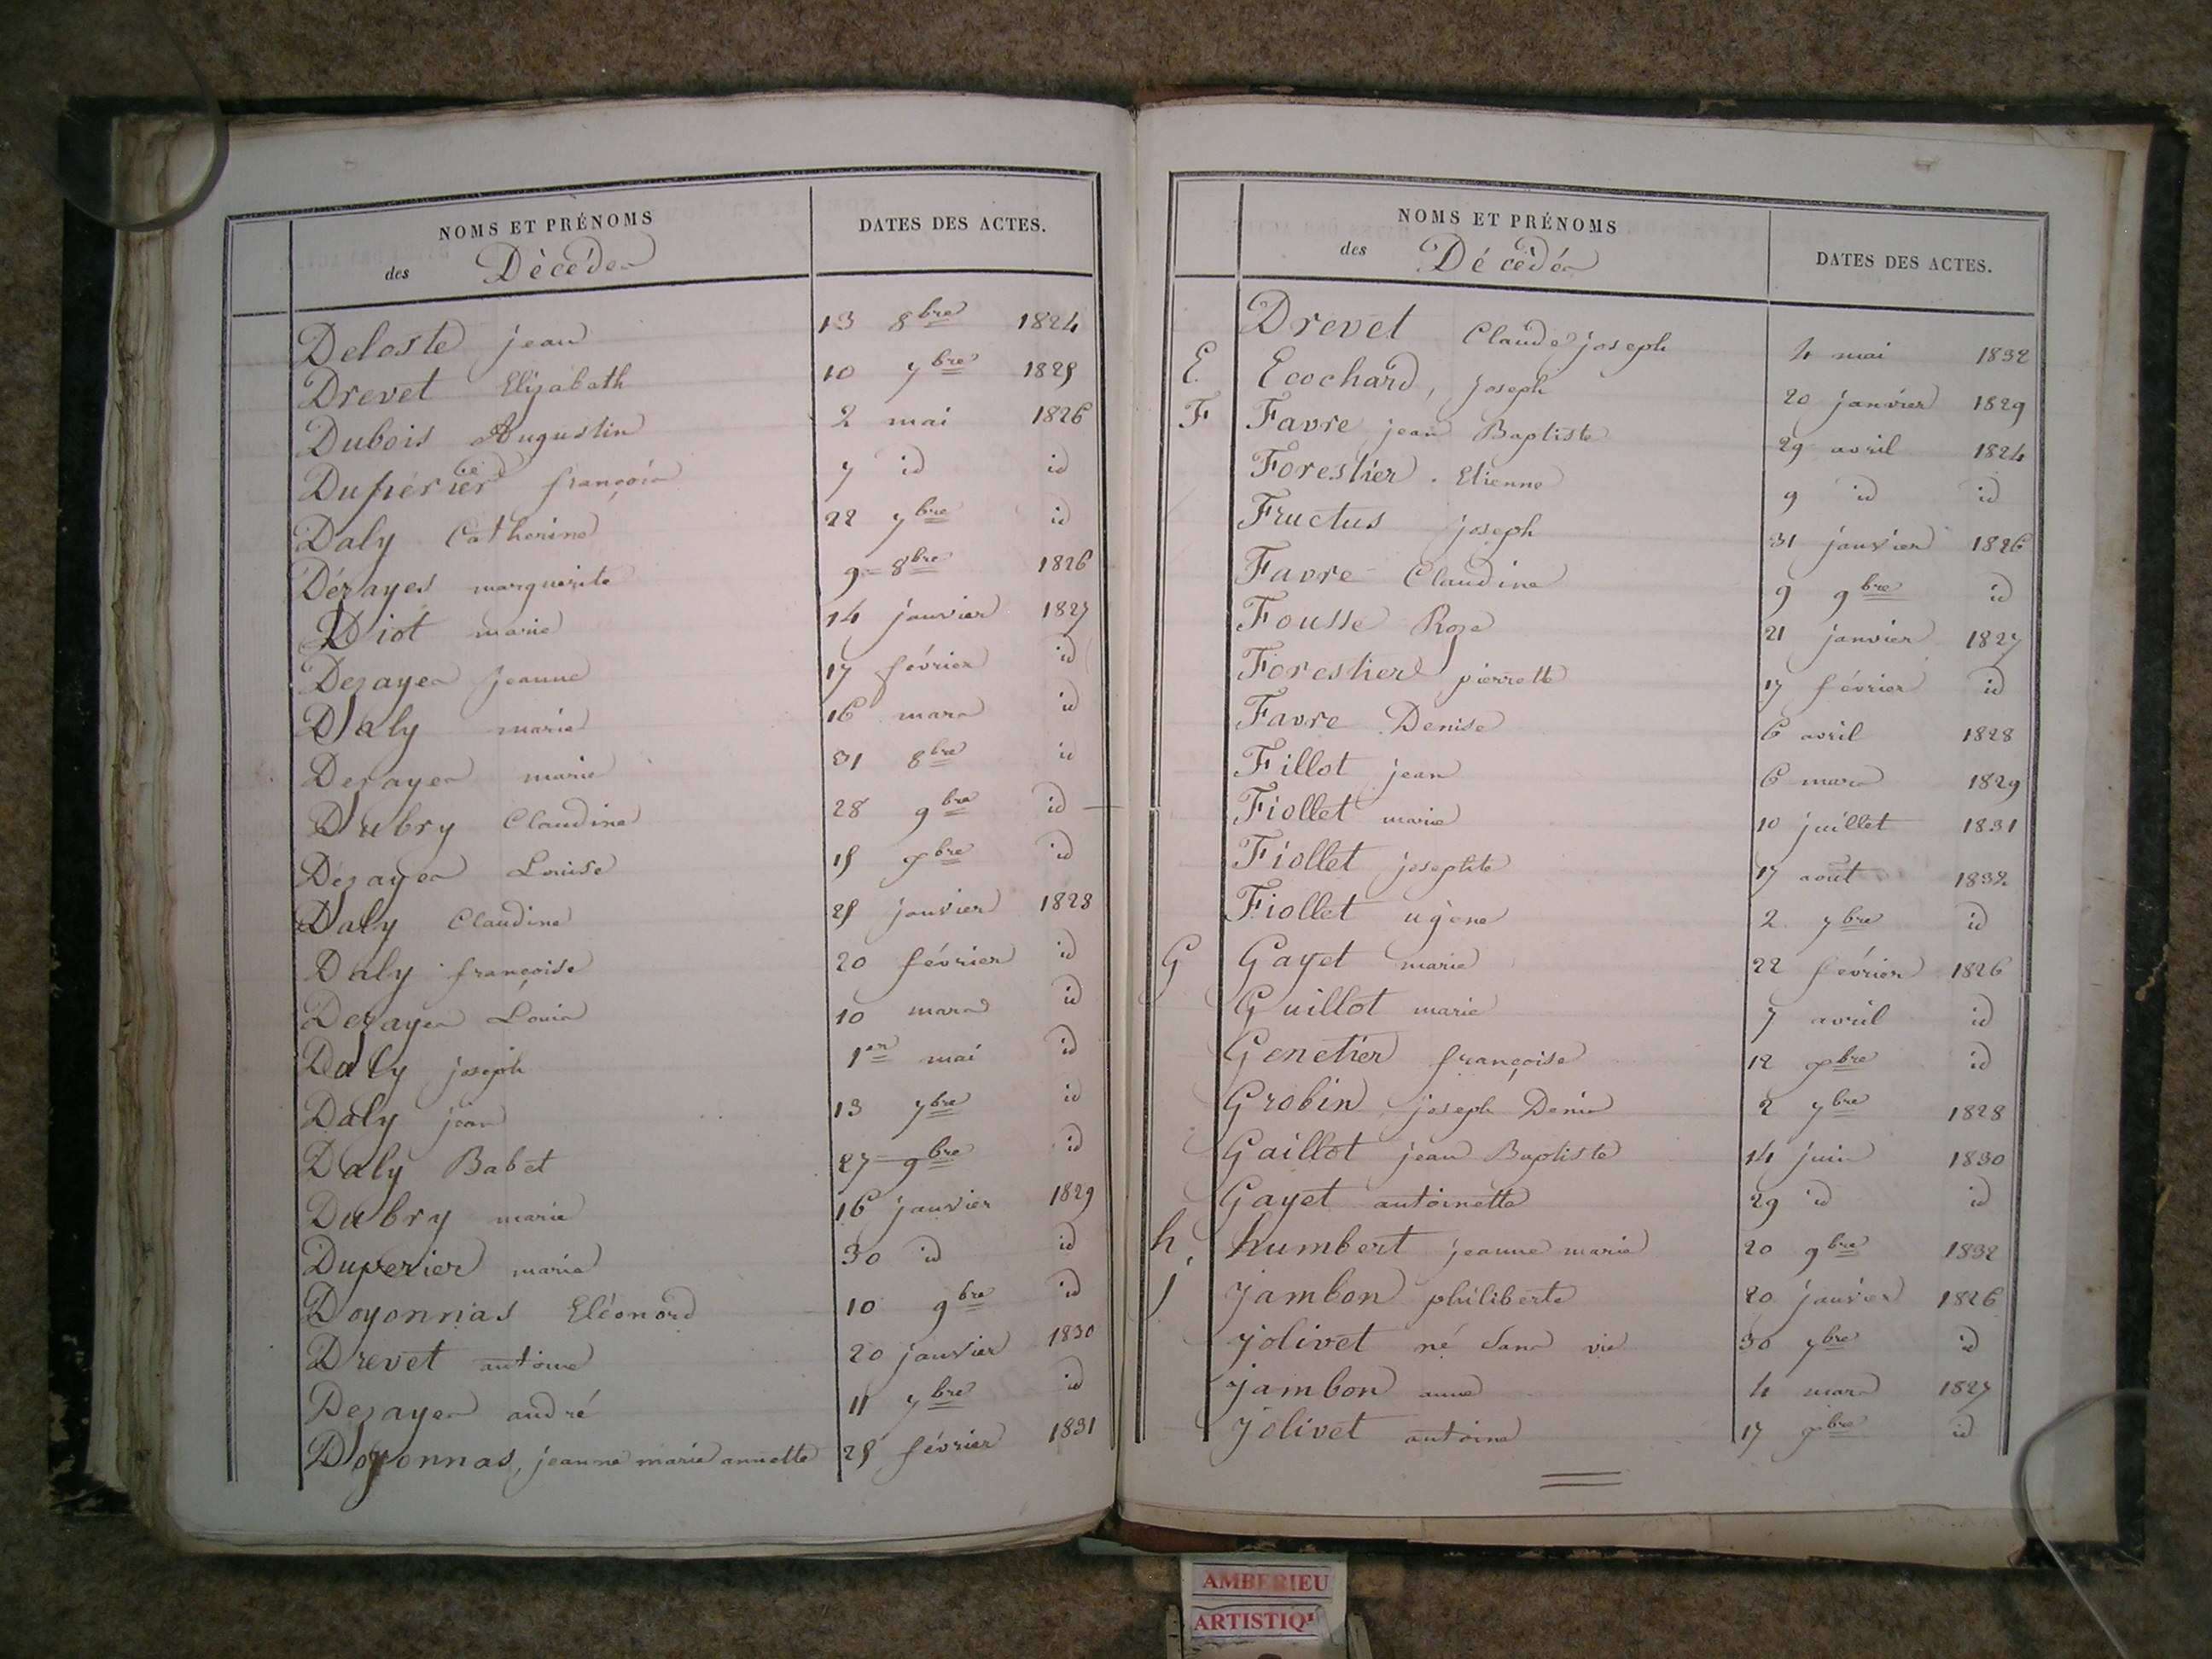 NOMS ET PRÉNOMS
des Décédés
DATES DES ACTES.
Deloste jean 13 8bre 1824
Drevet Elizabeth 10 7bre 1825
Dubois Augustin 2 mai 1826
Dupérier françois 7 id id
Daly Catherine 22 7bre id
Dézayes marguerite 9 8bre 1826
Diot marie 14 janvier 1827
Dezayes jeanne 17 février id
Daly marie 16 mars id
Dezayes marie 31 8bre id
Dubry Claudine 28 9bre id
Dézayes Louise 15 xbre id
Daly Claudine 25 janvier 1828
Daly françoise 20 février id
Dezayes Louis 10 mars id
Daly joseph 1er mai id
Daly jean 13 7bre id
Daly Babet 27 9bre id
Dubry marie 16 janvier 1829
Duperier marie 30 id id
Doyonnas Eléonord 10 9bre id
Drevet antoine 20 janvier 1830
Dezayes andré 11 7bre id
Doyonnas, jeanne marie annette 25 février 1831
NOMS ET PRÉNOMS
des Décédés
DATES DES ACTES.
Drevet Claude joseph 4 mai 1832
E. Ecochard, joseph 20 janvier 1829
F Favre jean Baptiste 29 avril 1824
Forestier Etienne 9 id id
Fructus joseph 31 janvier 1826
Favre Claudine 9 9bre id
Fousse Roze 21 janvier 1827
Forestier pierrette 17 février id
Favre Denise 6 avril 1828
Fillot jean 6 mars 1829
Fiollet marie 10 juillet 1831
Fiollet josephte 17 août 1832
Fiollet ugène 2 7bre id
G Gayet marie 22 février 1826
Guillot marie 7 avril id
Genetier françoise 12 xbre id
Grobin joseph Denis 2 7bre 1828
Gaillot jean Baptiste 14 juin 1830
Gayet antoinette 29 id id
h. humbert jeanne marie 20 9bre 1832
J jambon philiberte 20 janvier 1826
jolivet né sans vie 30 7bre id
jambon anne 4 mars 1827
jolivet antoine 17 xbre id
AMBERIEU
ARTISTIQ